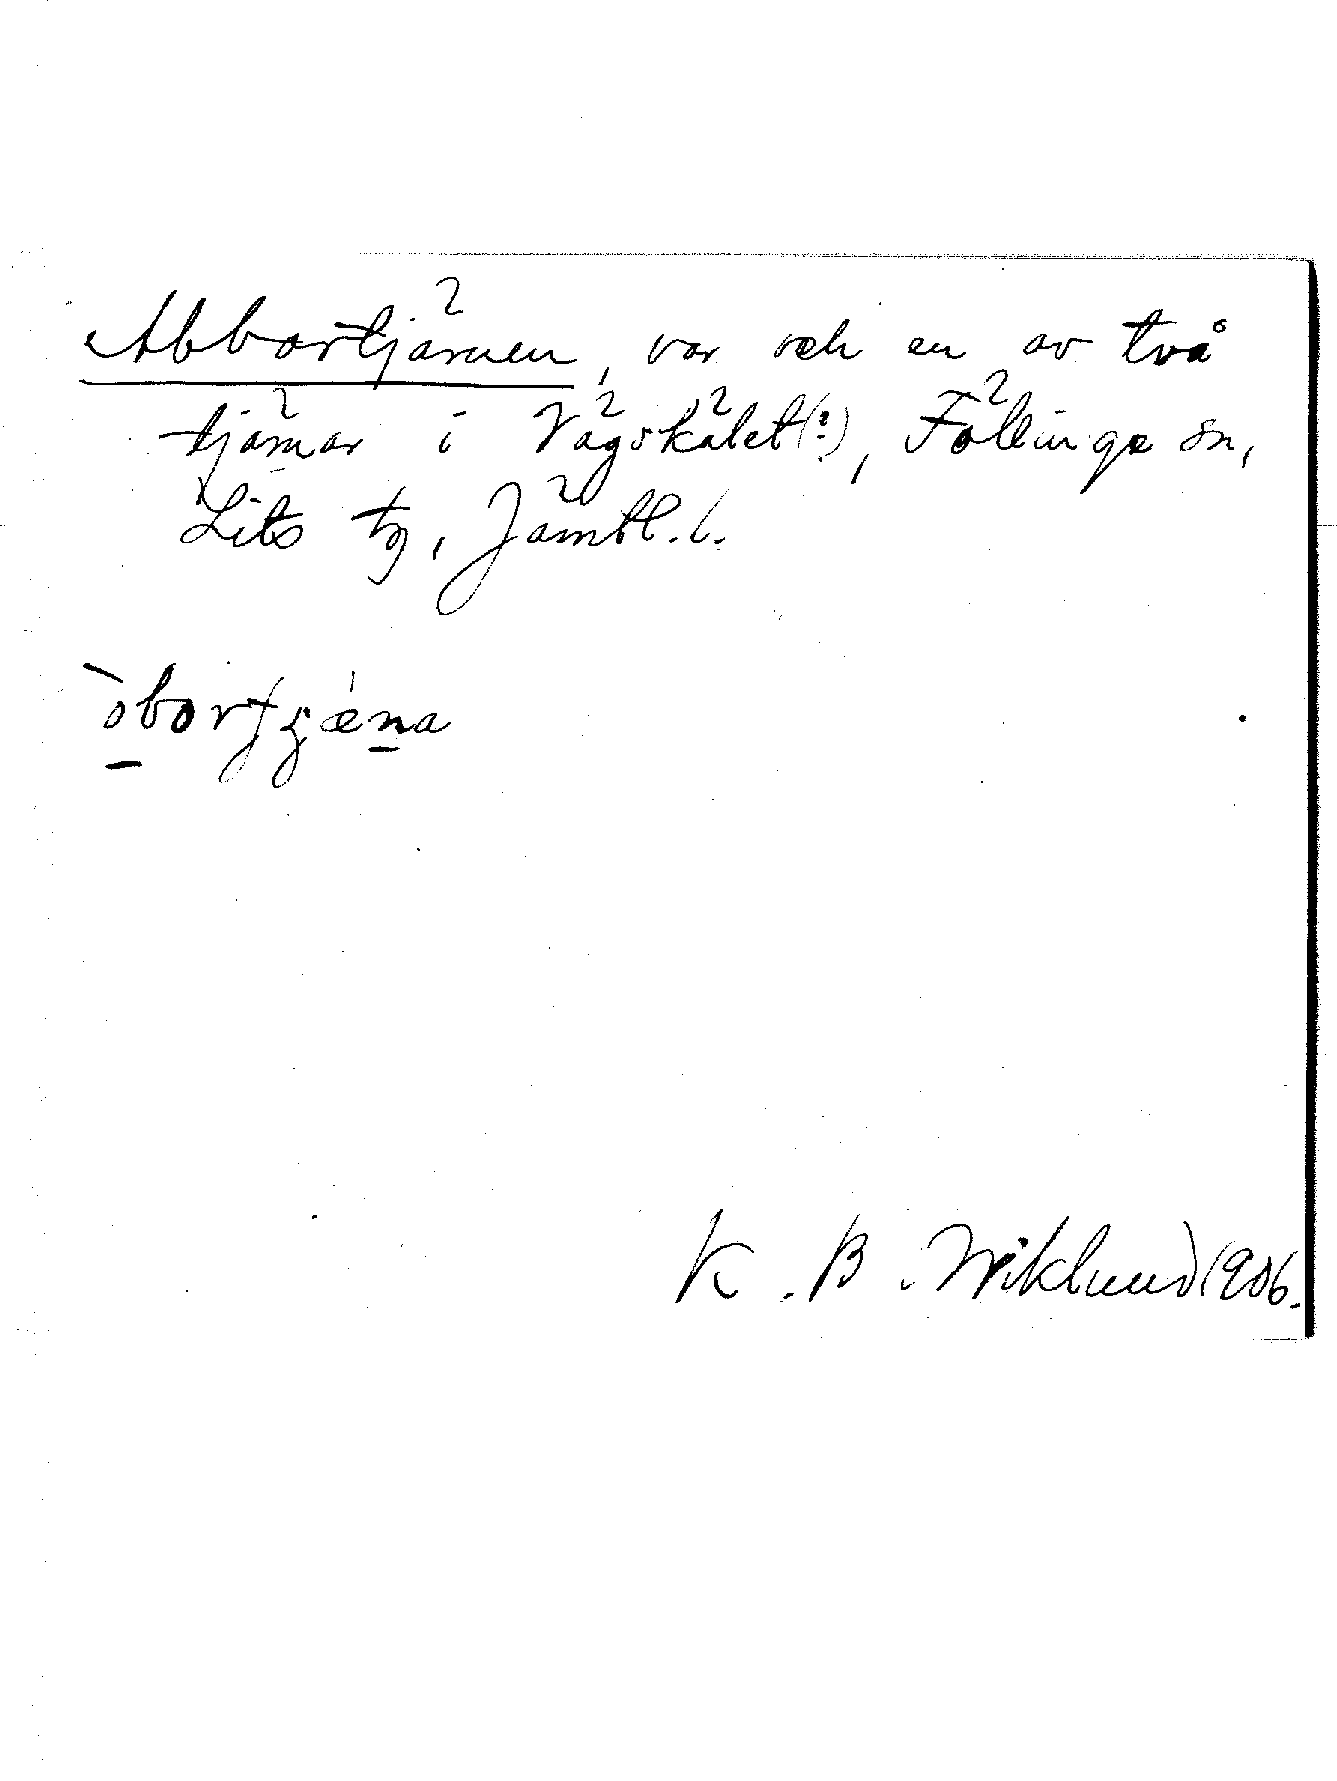 Abbortjärnen, var och en av två
tjärnar i Vägskälet(?), Föllinge sn,
Lits tg, Jämtl. l.
òbortʃǽna
K. B. Wiklund 1906.